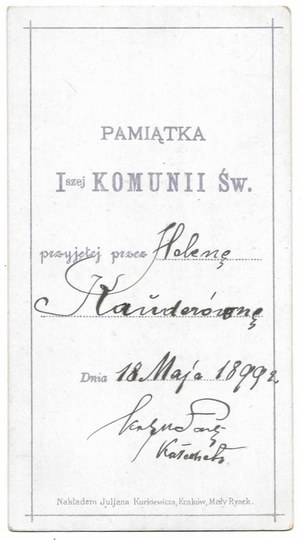 PAMIĄTKA
Iszej KOMUNII Św.
przyjętej przez Helenę
Kauderównę
Dnia 18 Maja 1899 r.
Katecheta
Nakładem Juljana Kurkiewicza, Kraków, Mały Rynek.